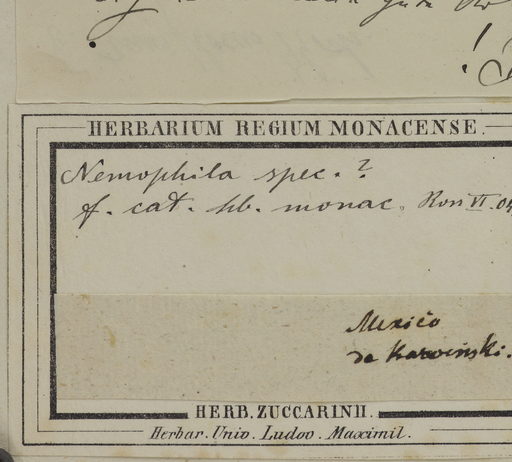 HERBARIUM REGIUM MONACENSE.
Nemophila spec. ?
f. cat. hb. monac. Ross VI. 04
Mexico
de Karwinski.
HERB. ZUCCARINII.
Herbar. Univ. Ludov. Maximil.